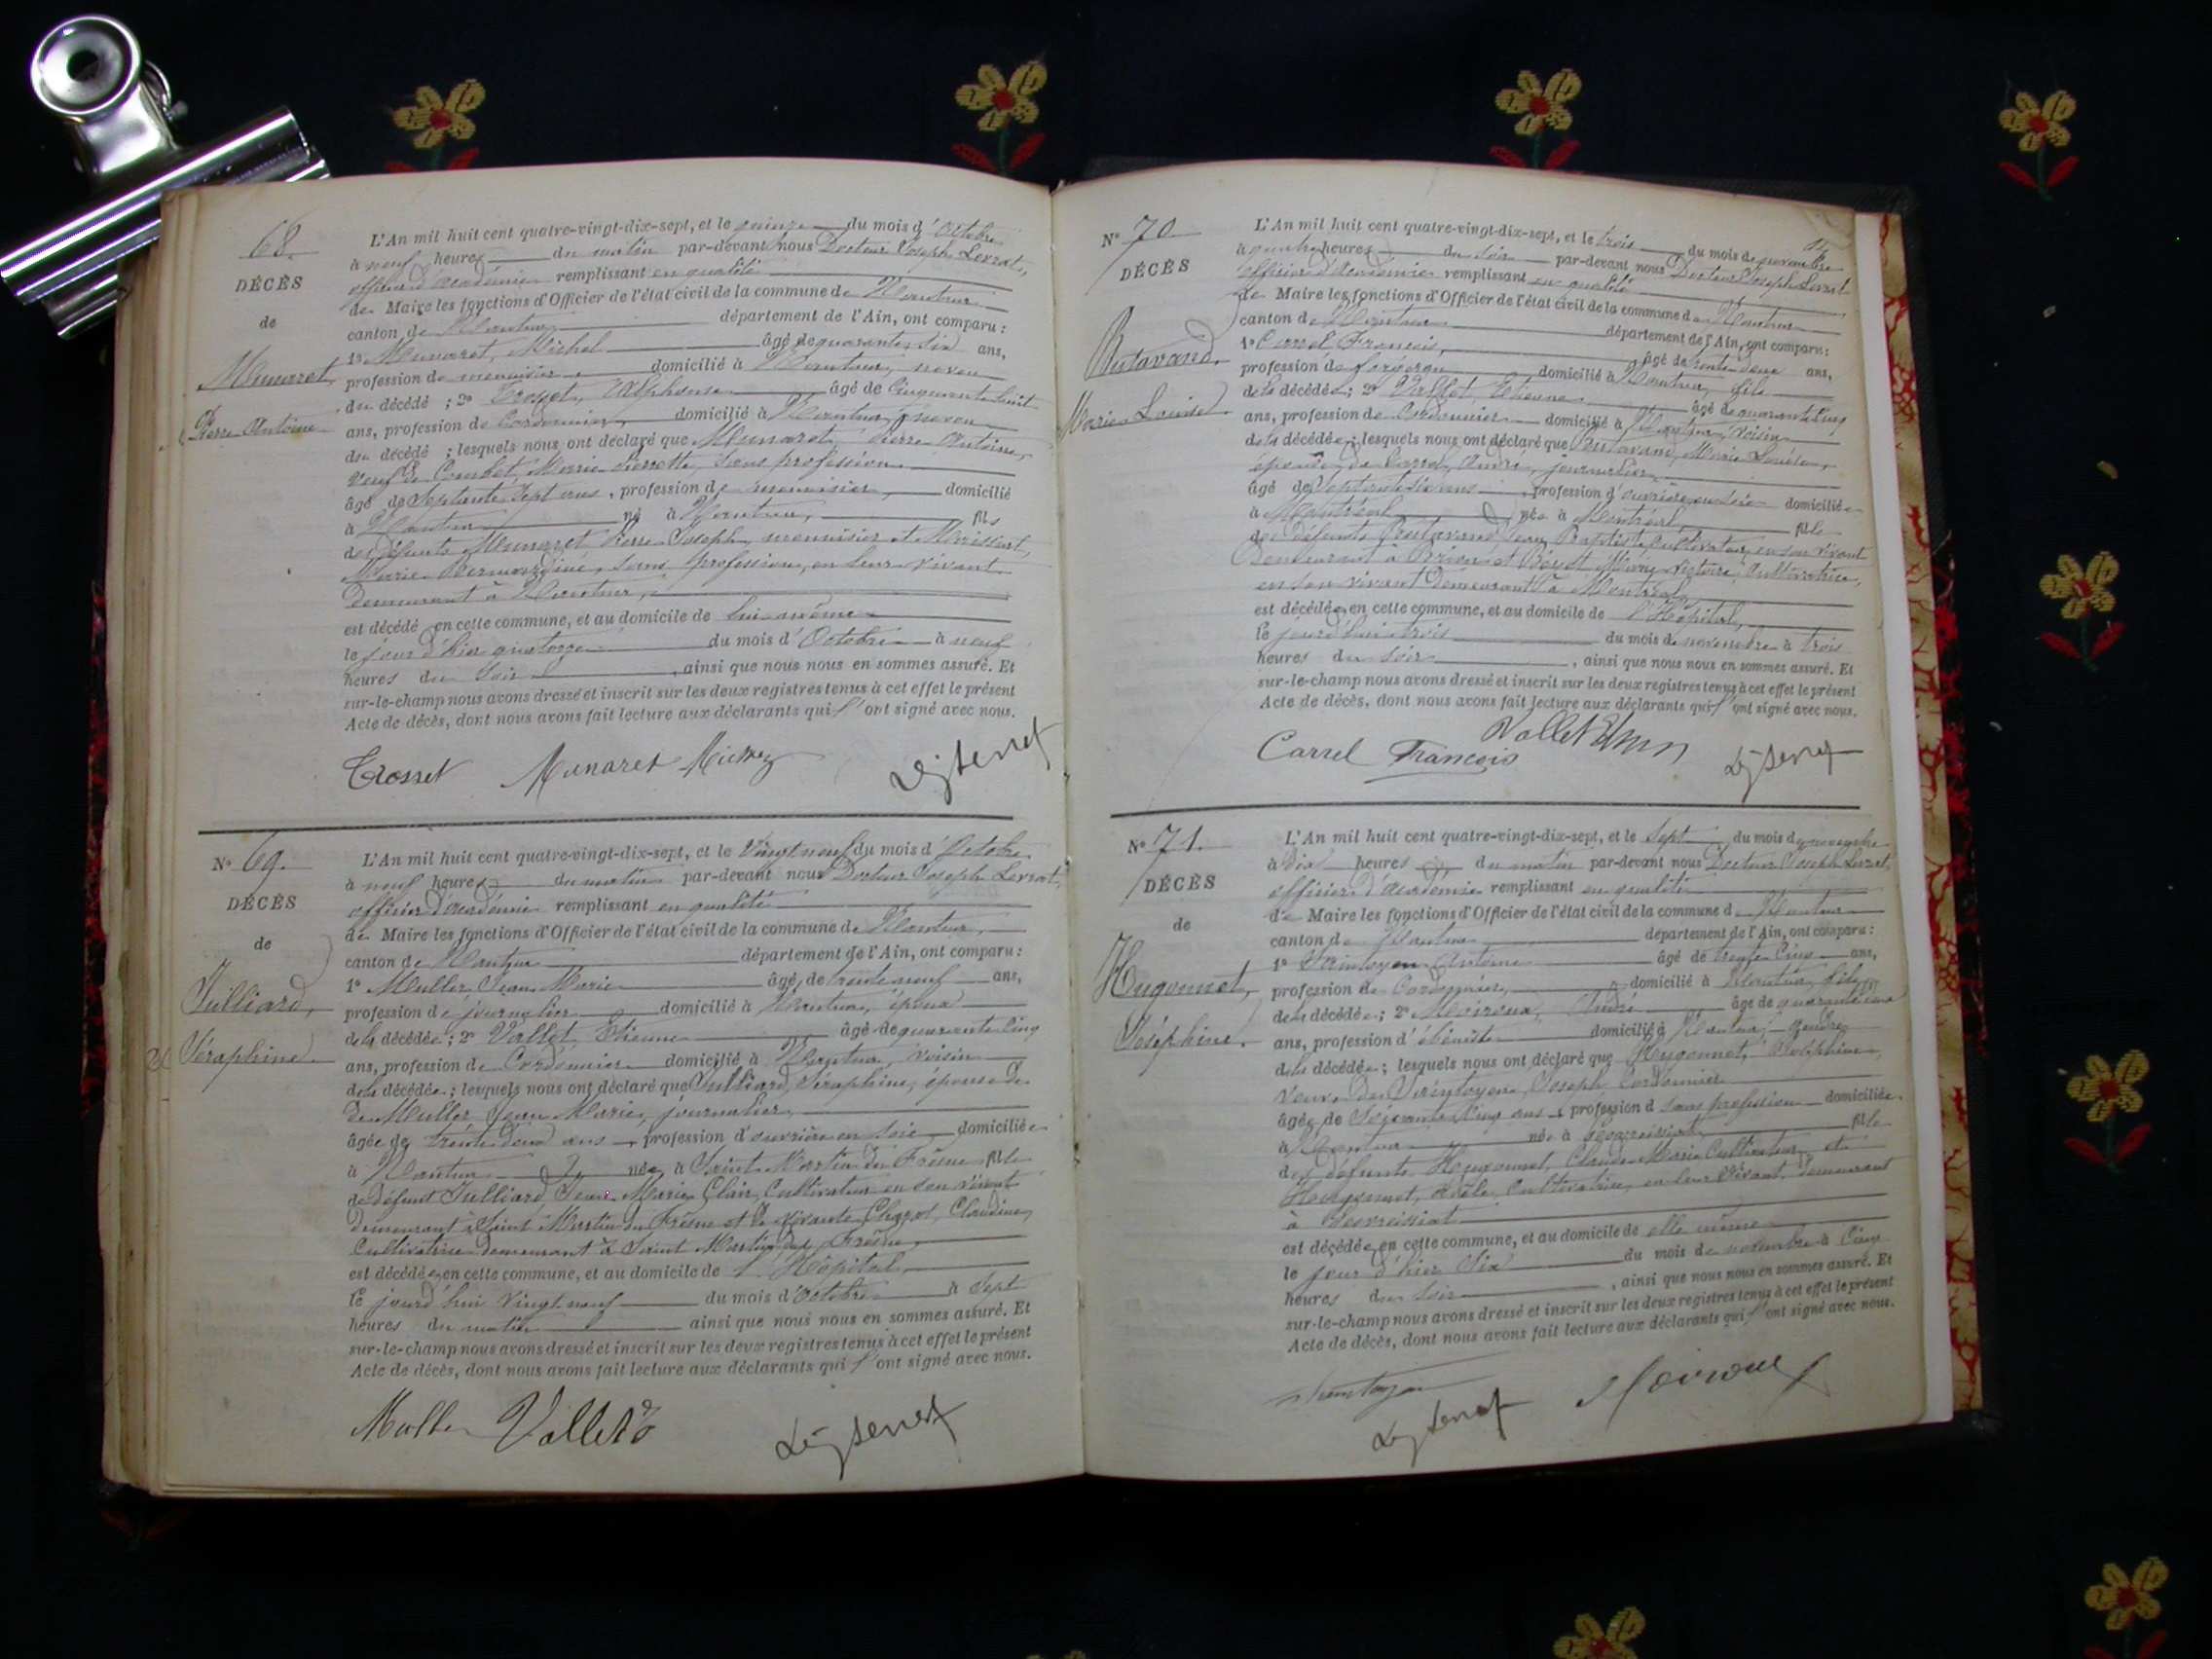 68.
DÉCÈS
de
Munaret,
Pierre Antoine
L'An mil huit cent quatre-vingt-dix-sept, et le quinze du mois d'Octobre
à neuf heures du matin par-devant nous Docteur Joseph Levrat,
officier d'académie remplissant en qualité
de Maire les fonctions d'Officier de l'état civil de la commune de Nantua
canton de Nantua département de l'Ain, ont comparu :
1° Munaret, Michel âgé de quarante six ans,
profession de menuisier domicilié à Nantua, neveu
du décédé ; 2° Crosset, Alphonse âgé de cinquante huit
ans, profession de Cordonnier, domicilié à Nantua, neveu
du décédé ; lesquels nous ont déclaré que Munaret, Pierre Antoine,
veuf de Combet, Marie Pierrette, sans profession
âgé de Septante Sept ans, profession de menuisier, domicilié
à Nantua né à Nantua, fils
des défunts Munaret, Pierre Joseph, menuisier et
Marie Bernardine, sans profession, en leur vivant
demeurant à Nantua,
est décédé en cette commune, et au domicile de lui-même
le jour d'hier quatorze du mois d'Octobre à neuf
heures du Soir, ainsi que nous nous en sommes assuré. Et
sur-le-champ nous avons dressé et inscrit sur les deux registres tenus à cet effet le présent
Acte de décès, dont nous avons fait lecture aux déclarants qui l'ont signé avec nous.
Crosset Munaret Michel
N° 69.
DÉCÈS
de
Julliard,
Séraphine
L'An mil huit cent quatre-vingt-dix-sept, et le Vingt neuf du mois d'Octobre
à neuf heures du matin par-devant nous Docteur Joseph Levrat,
officier d'académie remplissant en qualité
de Maire les fonctions d'Officier de l'état civil de la commune de Nantua,
canton de Nantua département de l'Ain, ont comparu :
1° Muller, Jean Marie âgé de trente neuf ans,
profession de journalier domicilié à Nantua, époux
de la décédée ; 2° Vallet, Etienne âgé de quarante cinq
ans, profession de Cordonnier domicilié à Nantua, voisin
de la décédée ; lesquels nous ont déclaré que Julliard, Séraphine, épouse de
de Muller, Jean Marie, journalier,
âgée de trente deux ans, profession d'ouvrière en soie domiciliée
à Nantua née à Saint Martin du Frêne fille
de défunt Julliard, Jean Marie Clair, Cultivateur en son vivant
demeurant à Saint Martin du Frêne et de vivante Claudine,
Cultivatrice demeurant à Saint Martin du Frêne,
est décédée en cette commune, et au domicile de l'Hôpital,
le jourd'hui vingt neuf du mois d'Octobre à Sept
heures du matin ainsi que nous nous en sommes assuré. Et
sur-le-champ nous avons dressé et inscrit sur les deux registres tenus à cet effet le présent
Acte de décès, dont nous avons fait lecture aux déclarants qui l'ont signé avec nous.
Muller Vallet
N° 70
DÉCÈS
Butavand,
Marie Louise
L'An mil huit cent quatre-vingt-dix-sept, et le trois du mois de novembre
à quatre heures du soir par-devant nous Docteur Joseph Levrat
officier d'académie remplissant en qualité
de Maire les fonctions d'Officier de l'état civil de la commune de Nantua
canton de Nantua département de l'Ain, ont comparu :
1° Carrel François, âgé de trente deux ans,
profession de forgeron domicilié à Nantua, fils
de la décédée ; 2° Vallet, Etienne âgé de quarante cinq
ans, profession de Cordonnier domicilié à Nantua, voisin
de la décédée ; lesquels nous ont déclaré que Butavand, Marie Louise,
épouse de Carrel, André, journalier,
âgé de ans, profession d'ouvrière en soie domiciliée
à Montréal née à Montréal, fille
des défunts Butavand Jean Baptiste Cultivateur, en son vivant
demeurant à et Victoire, Cultivatrice,
en son vivant demeurant à Montréal,
est décédée en cette commune, et au domicile de l'Hôpital,
le jourd'hui trois du mois de novembre à trois
heures du soir, ainsi que nous nous en sommes assuré. Et
sur-le-champ nous avons dressé et inscrit sur les deux registres tenus à cet effet le présent
Acte de décès, dont nous avons fait lecture aux déclarants qui l'ont signé avec nous.
Carrel François Vallet
N° 71.
DÉCÈS
de
Hugonnet,
Joséphine.
L'An mil huit cent quatre-vingt-dix-sept, et le Sept du mois de novembre
à Dix heures du matin par-devant nous Docteur Joseph Levrat,
officier d'académie remplissant en qualité
de Maire les fonctions d'Officier de l'état civil de la commune de Nantua
canton de Nantua département de l'Ain, ont comparu :
1° Antoine âgé de trente Cinq ans,
profession de Cordonnier, domicilié à Nantua, fils
de la décédée ; 2° Moiroux, André âgé de
ans, profession d'ébéniste domicilié à Nantua, gendre
de la décédée ; lesquels nous ont déclaré que Hugonnet, Joséphine,
veuve de Joseph, Cordonnier
âgée de Soixante Cinq ans, profession d sans profession domiciliée
à Nantua née à fille
des défunts Hugonnet, Claude Marie Cultivateur et
Hugonnet, Adèle, Cultivatrice, en leur vivant demeurant
à
est décédée en cette commune, et au domicile de elle même
le jour d'hier Six du mois de novembre à Cinq
heures du Soir, ainsi que nous nous en sommes assuré. Et
sur-le-champ nous avons dressé et inscrit sur les deux registres tenus à cet effet le présent
Acte de décès, dont nous avons fait lecture aux déclarants qui l'ont signé avec nous.
Moiroux